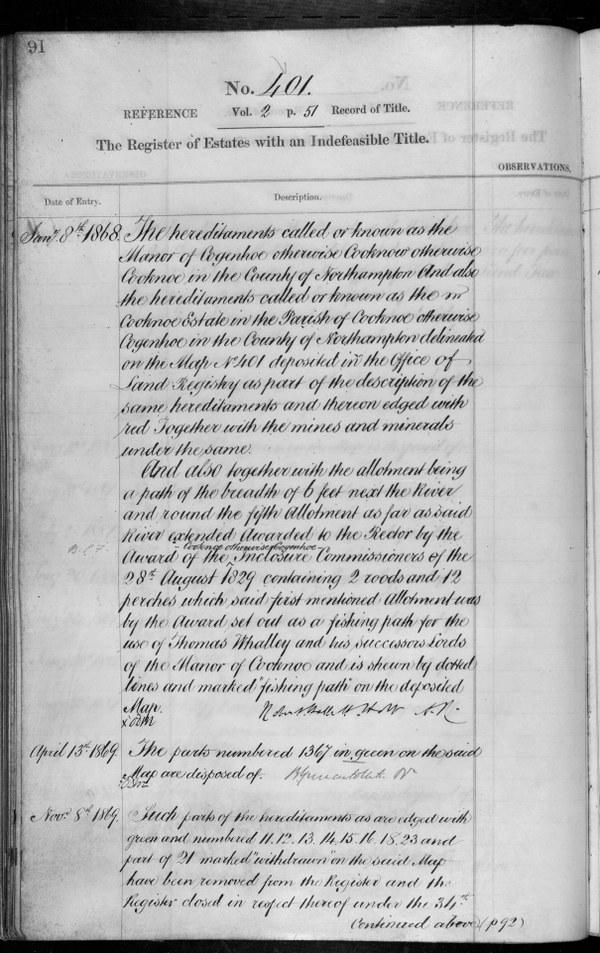 91
No. 401.
REFERENCE Vol. 2 p. 51 Record of Title.
The Register of Estates with an Indefeasible Title.
OBSERVATIONS.
Date of Entry. Description.
Jany. 8th 1868 The hereditaments called or known as the
Manor of Cogenhoe otherwise Cooknow otherwise
Cooknoe in the County of Northampton And also
the hereditaments called or known as the
Cooknoe Estate in the Parish of Cooknoe otherwise
Cogenhoe in the County of Northampton delineated
on the Map No. 401 deposited in the Office of
Land Registry as part of the description of the
same hereditaments and thereon edged with
red Together with the mines and minerals
under the same.
And also together with the allotment being
a path of the breadth of 6 feet next the River
and round the fifth Allotment as far as said
River extended Awarded to the Rector by the
Cooknoe otherwise Cogenhoe
Award of the Inclosure Commissioners of the
28th August 1829 containing 2 roods and 12
perches which said first mentioned Allotment was
by the Award set out as a fishing path for the
use of Thomas Whalley and his successors Lords
of the Manor of Cooknoe and is shewn by dotted
lines and marked "fishing path" on the deposited
Map.
April 13th 1869 The parts numbered 1367 in green on the said
Map are disposed of.
Novr. 8th 1869 Such parts of the hereditaments as are edged with
green and numbered 11. 12. 13. 14. 15. 16. 18. 23 and
part of 21 marked "withdrawn" on the said Map
have been removed from the Register and the
Register closed in respect thereof under the 34th
Continued above (p 92)